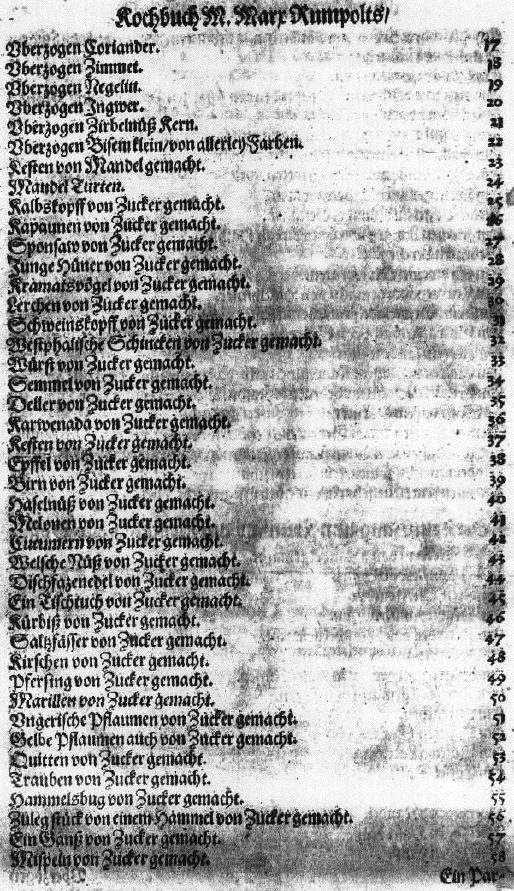 Kochbuch M. Marx Rumpolts/
Vberzogen Coriander. 17
Vberzogen Zimmet. 18
Vberzogen Negelin. 19
Vberzogen Ingwer. 20
Vberzogen Zirbelnüß Kern. 21
Vberzogen Bisem klein/von allerley Farben. 22
Kesten von Mandel gemacht. 23
Mandel Turten. 24
Kalbskopff von Zucker gemacht. 25
Kapaunen von Zucker gemacht. 26
Sponsaw von Zucker gemacht. 27
Junge Hüner von Zucker gemacht. 28
Kramatsvögel von Zucker gemacht. 29
Lerchen von Zucker gemacht. 30
Schweinskopff von Zucker gemacht. 31
Westphalische Schincken von Zucker gemacht. 32
Würst von Zucker gemacht. 33
Semmel von Zucker gemacht. 34
Deller von Zucker gemacht. 35
Karwenada von Zucker gemacht. 36
Kesten von Zucker gemacht. 37
Epffel von Zucker gemacht. 38
Birn von Zucker gemacht. 39
Haselnüß von Zucker gemacht. 40
Melonen von Zucker gemacht. 41
Cucumern von Zucker gemacht. 42
Welsche Nüß von Zucker gemacht. 43
Dischfazenedel von Zucker gemacht. 44
Ein Tischtuch von Zucker gemacht. 45
Kürbiß von Zucker gemacht. 46
Saltzfässer von Zucker gemacht. 47
Kirschen von Zucker gemacht. 48
Pfersing von Zucker gemacht. 49
Marillen von Zucker gemacht. 50
Vngerische Pflaumen von Zucker gemacht. 51
Gelbe Pflaumen auch von Zucker gemacht. 52
Quitten von Zucker gemacht. 53
Trauben von Zucker gemacht. 54
Hammelsbug von Zucker gemacht. 55
Zuleg stück von einem Hammel von Zucker gemacht. 56
Ein Ganß von Zucker gemacht. 57
Mispeln von Zucker gemacht. 58
Ein Par-